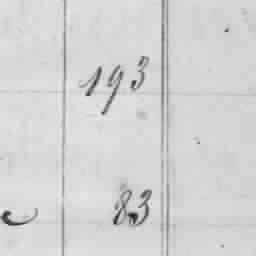 193
83